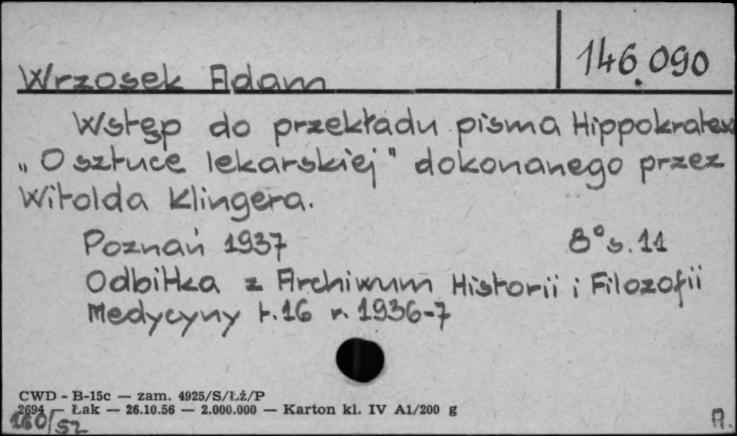 146.090
Wrzosek Adam
Wstęp do przekładu pisma Hippokratesa
„O sztuce lekarskiej" dokonanego przez
Witolda Klingera.
Poznań 1937 8° s. 11
Odbitka z Archiwum Historii i Filozofii
Medycyny t. 16 r. 1936-7
CWD - B-15c — zam. 4925/S/Łż/P
2694 — Łak — 26.10.56 — 2.000.000 — Karton kl. IV A1/200 g
160/52 A.